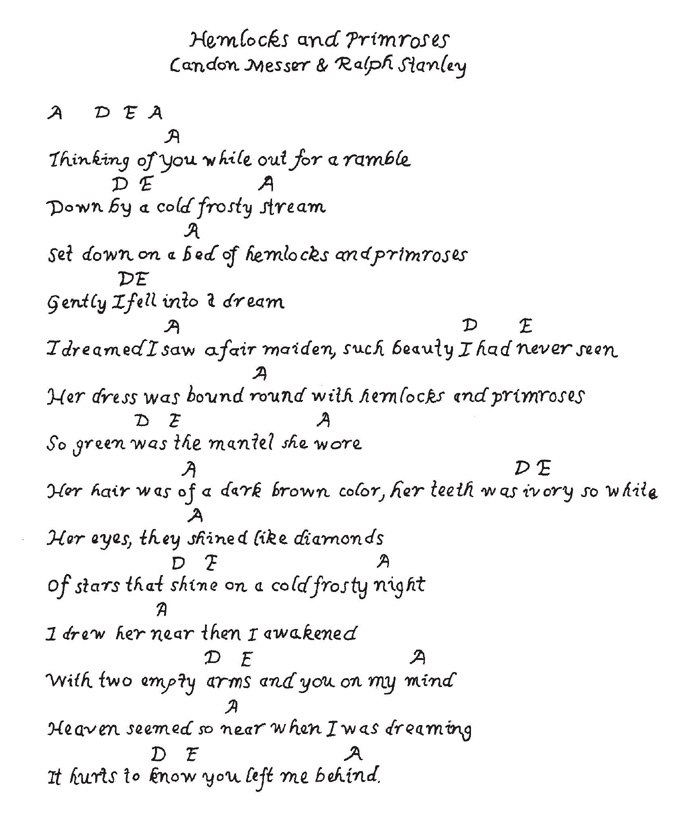 Hemlocks and Primroses
Landon Messer & Ralph Stanley
A D E A
A
Thinking of you while out for a ramble
D E A
Down by a cold frosty stream
A
Set down on a bed of hemlocks and primroses
D E
Gently I fell into a dream
A D E
I dreamed I saw a fair maiden, such beauty I had never seen
A
Her dress was bound round with hemlocks and primroses
D E A
So green was the mantel she wore
A D E
Her hair was of a dark brown color, her teeth was ivory so white
A
Her eyes, they shined like diamonds
D E A
Of stars that shine on a cold frosty night
A
I drew her near then I awakened
D E A
With two empty arms and you on my mind
A
Heaven seemed so near when I was dreaming
D E A
It hurts to know you left me behind.